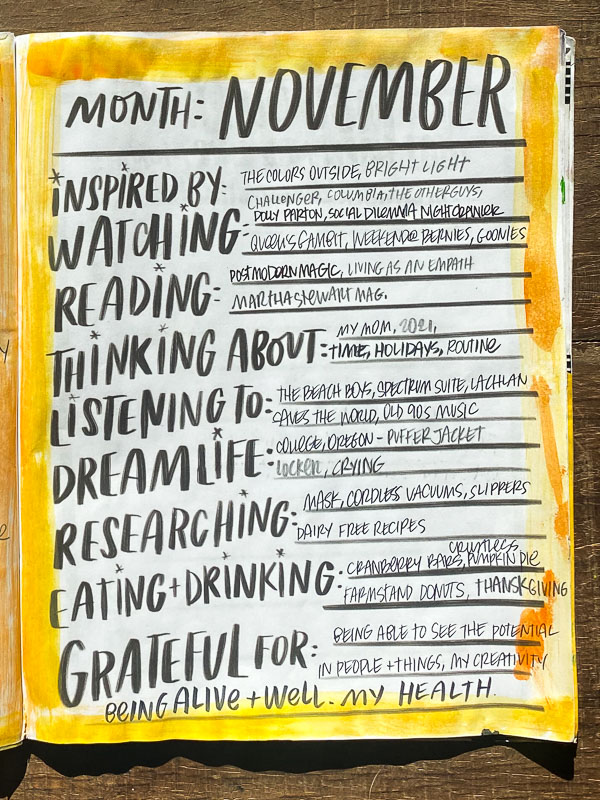 MONTH: NOVEMBER
INSPIRED BY: THE COLORS OUTSIDE, BRIGHT LIGHT
CHALLENGER, COLUMBIA, THE OTHER GUYS,
DOLLY PARTON, SOCIAL DILEMMA NIGHTCRAWLER
WATCHING: QUEEN'S GAMBIT, WEEKEND@BERNIES, GOONIES
READING: POSTMODERN MAGIC, LIVING AS AN EMPATH
MARTHA STEWART MAG.
THINKING ABOUT: MY MOM, 2021,
TIME, HOLIDAYS, ROUTINE
LISTENING TO: THE BEACH BOYS, SPECTRUM SUITE, LACHLAN
SAVES THE WORLD, OLD 90S MUSIC
DREAMLIFE: COLLEGE, OREGON - PUFFER JACKET
LOCKER, CRYING
RESEARCHING: MASK, CORDLESS VACUUMS, SLIPPERS
DAIRY FREE RECIPES
CRUSTLESS
EATING + DRINKING: CRANBERRY BARS, PUMPKIN PIE
FARMSTAND DONUTS, THANSKGIVING
GRATEFUL FOR: BEING ABLE TO SEE THE POTENTIAL
IN PEOPLE + THINGS, MY CREATIVITY
BEING ALIVE + WELL. MY HEALTH.